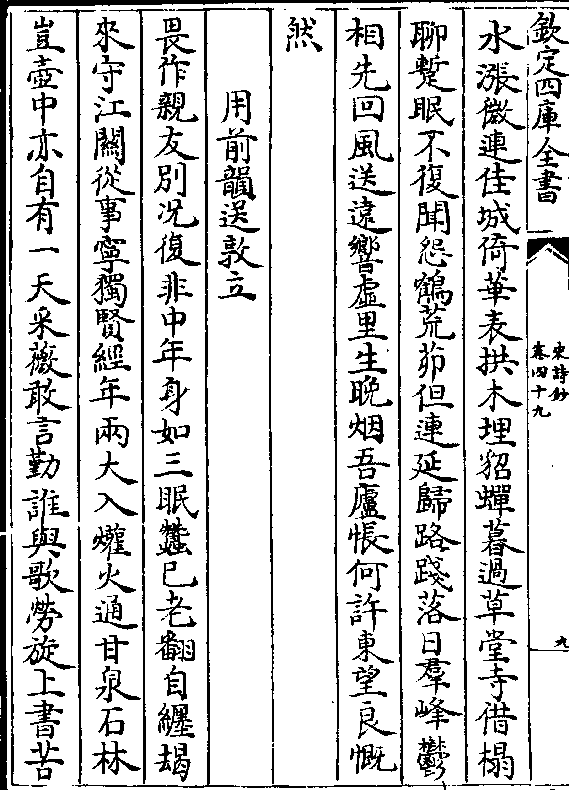 欽定四庫全書
宋詩鈔
卷四十九
九
水漲微連佳城倚華表拱木埋貂蟬暮過草堂寺借榻
聊蹔眠不復聞怨鶴荒茆但連延歸路踐落日羣峰鬱
相先回風送遠響虛里生晚烟吾廬悵何許東望良慨
然
用前韻送敦立
畏作親友別况復非中年身如三眠蠶已老翻自纏朅
來守江關從事寧獨賢經年兩大入爟火通甘泉石林
豈壺中亦自有一天采薇敢言勤誰與歌勞旋上書苦